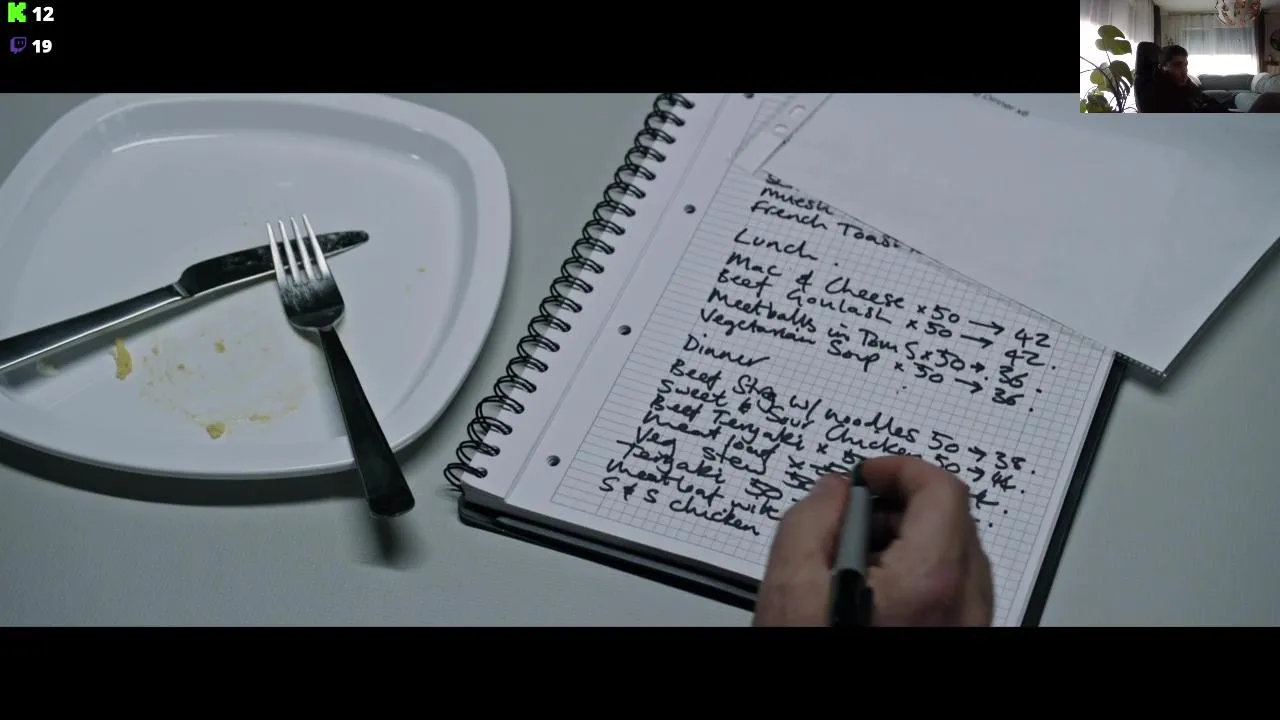 12
19
Dinner x6
Muesli
French Toast
Lunch
Mac & Cheese x50 → 42
Beef Goulash x50 → 42.
Meatballs in Tom S x50 → 36.
Vegetarian Soup x 50 → 36.
Dinner
Beef Stew w/ noodles 50 → 38.
Sweet & Sour Chicken 50 → 44.
Beef Teryaki x
Meat loaf x
Veg Stew 50
Teryaki 50
Meatloaf with
S & S chicken